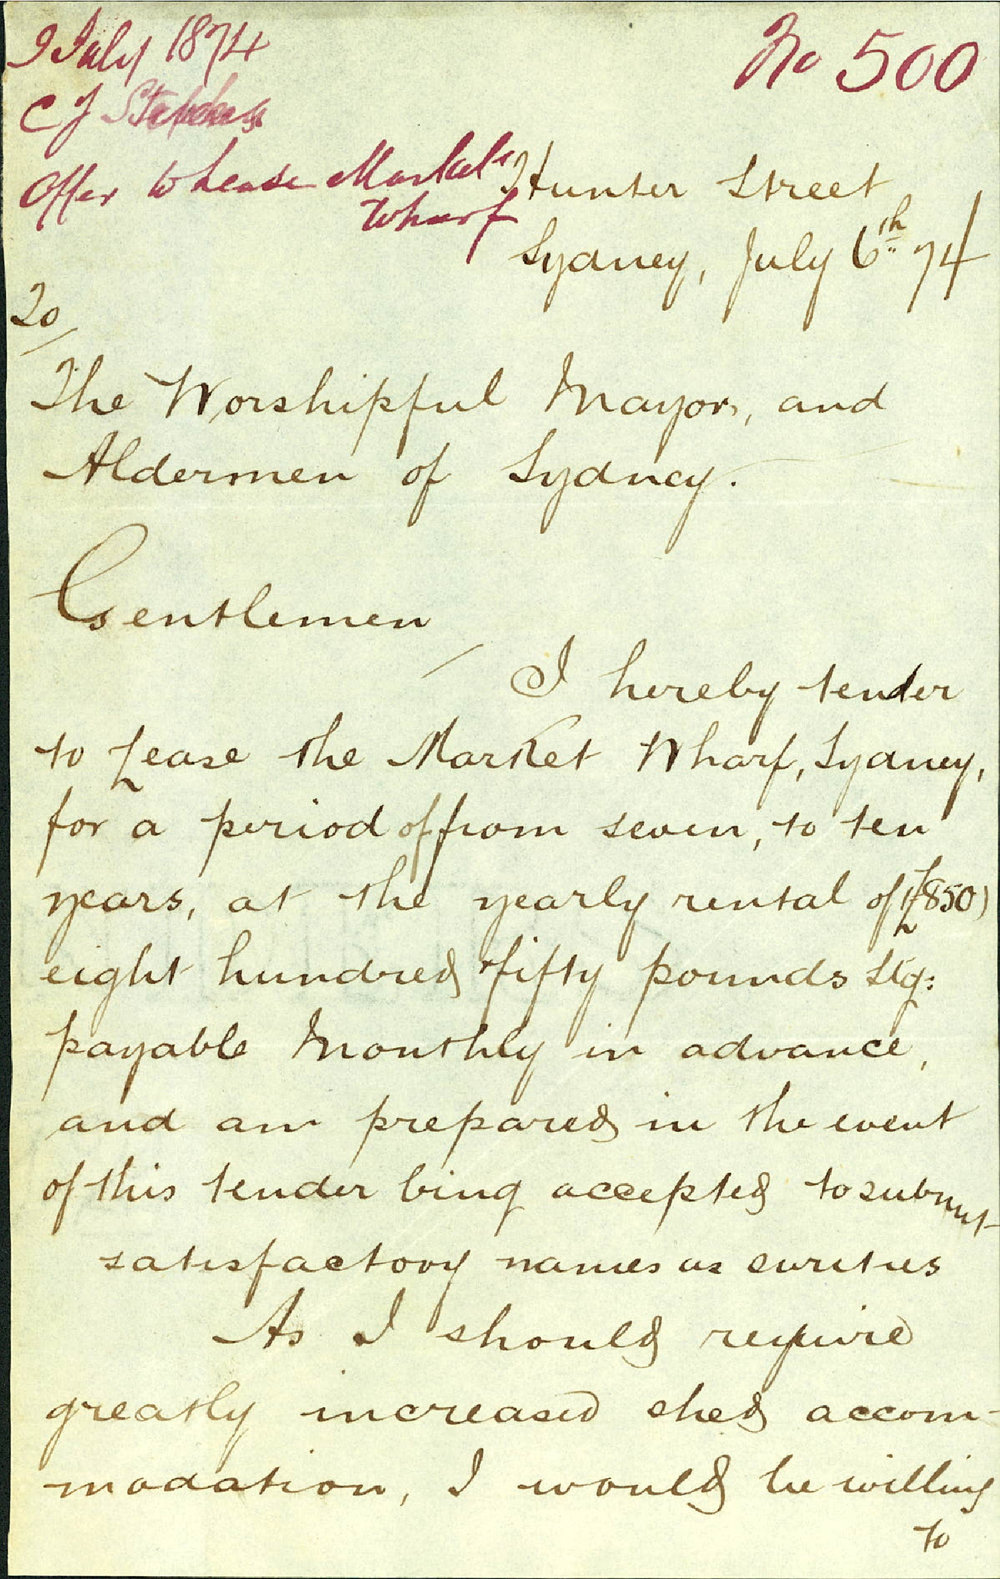 9 July 1874
No 500
C J Stephens
Offer to Lease Market
Wharf
Hunter Street
Sydney, July 6th 74
To
The Worshipful Mayor, and
Aldermen of Sydney.
Gentlemen
I hereby tender
to Lease the Market Wharf, Sydney,
for a period of from seven, to ten
years, at the yearly rental of (£850)
eight hundred & fifty pounds Stg:
payable Monthly in advance,
and am prepared in the event
of this tender being accepted to submit
satisfactory names as surities
As I should require
greatly increased shed accom-
modation, I would be willing
to